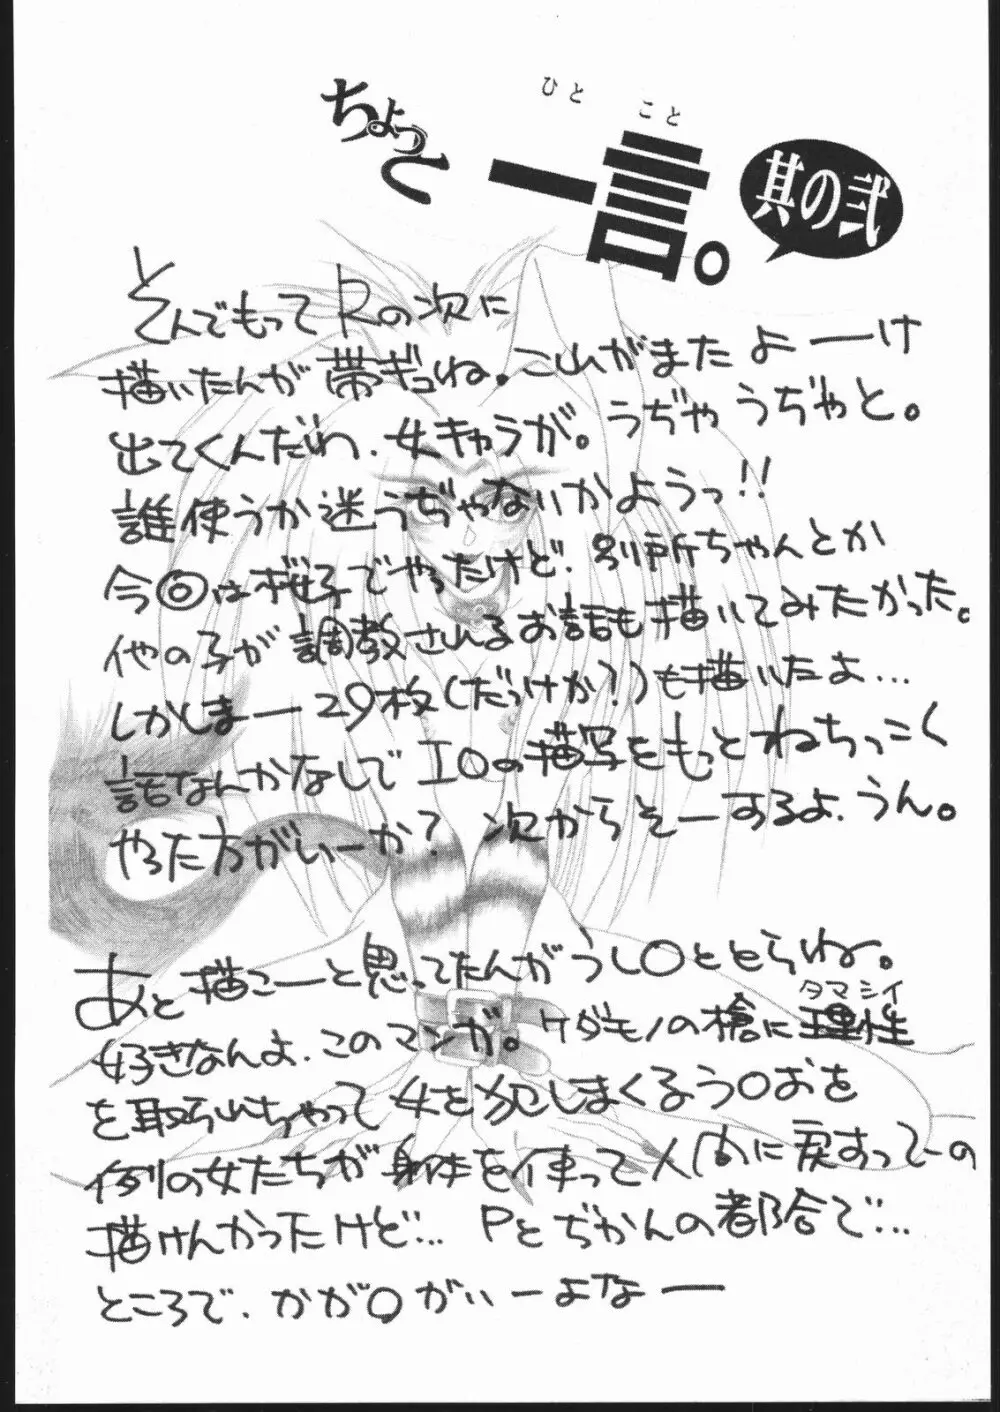 ちょっと一言。
ひとこと
其の弐
そんでもってRの次に
描いたんが帯ギュね。こいがまたよーけ
出てくんだわ、女キャラが。うぢゃうぢゃと。
誰使うか迷うぢゃないかようっ!!
今回は桜子でやったけど、別所ちゃんとか
他の子が調教されるお話も描いてみたかった。
しかしまー29枚(だっけか?)も描いたよ…
話なんかなしでエロの描写をもっとねちっこく
やった方がいーか?次からそーするよ、うん。
あと描こーと思ってたんがうし○ととらね。
好きなんよ、このマンガ。ケダモノの槍に理性
タマシイ
を取らいちゃって女を犯しまくるう○おを
例の女たちが身体を使って人間に戻すってーの
描けんかったけど… Pとぢかんの都合で…
ところで、かが○がいーよなー